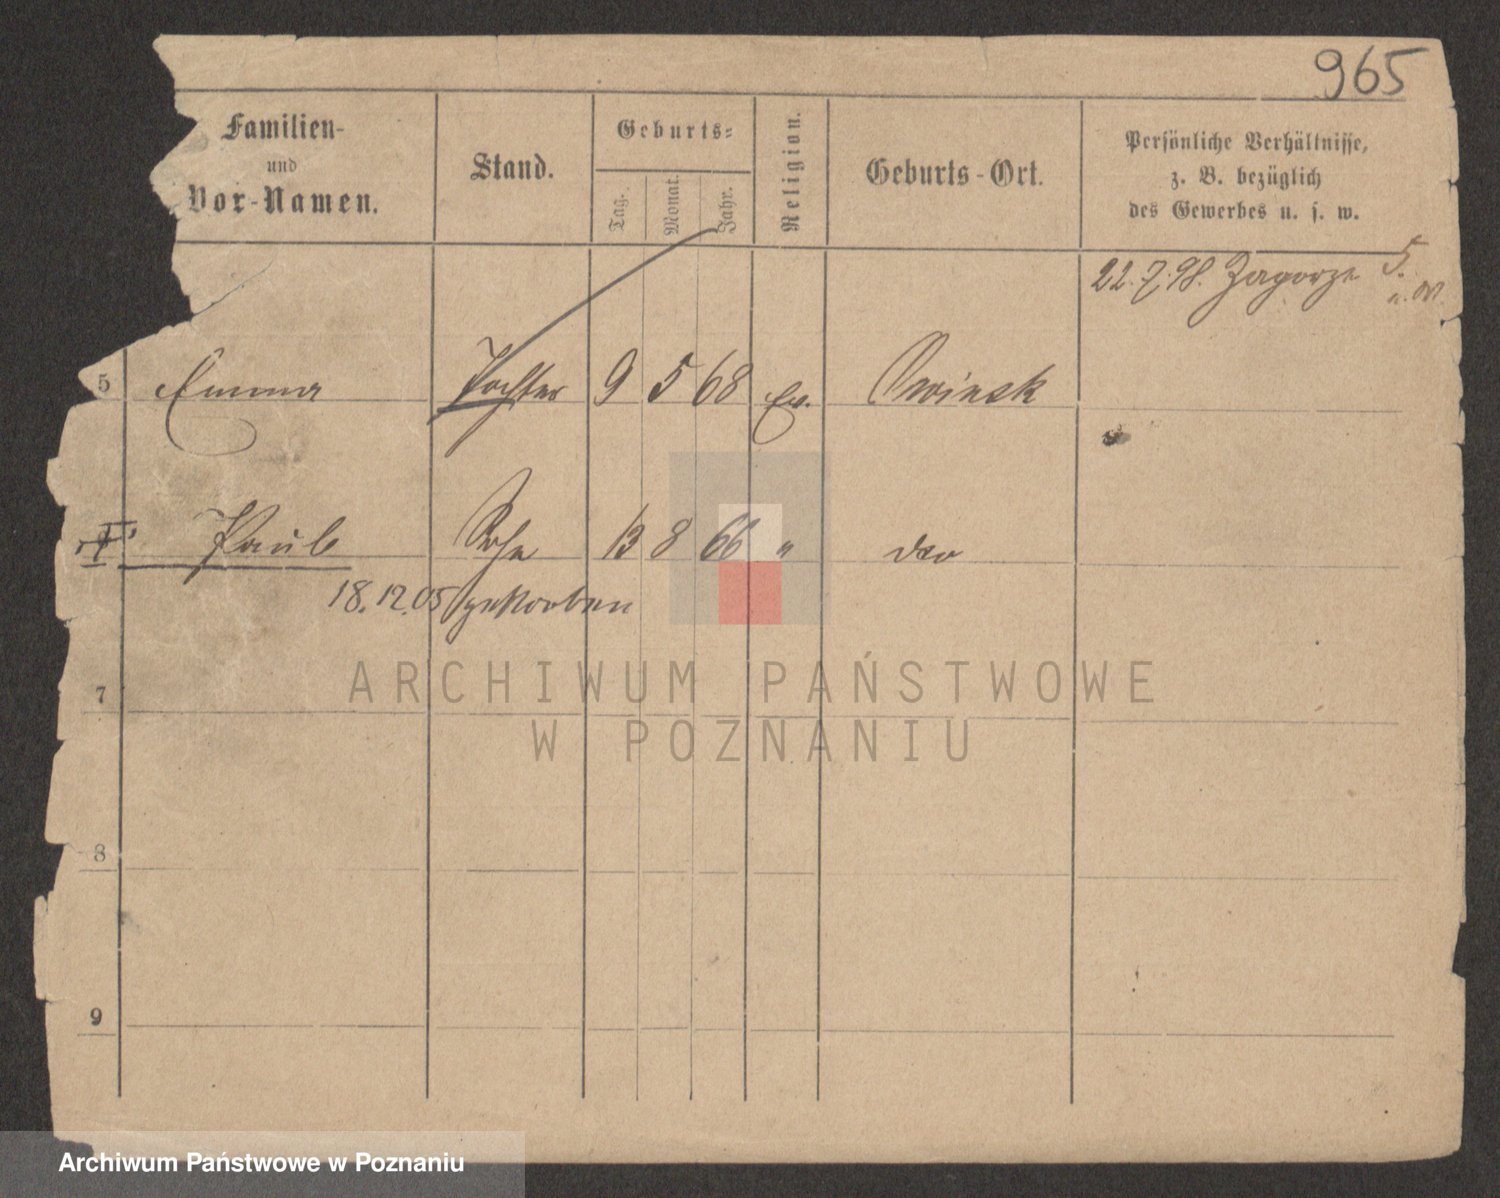 965
Familien-
und
Vor-Namen.
Stand.
Geburts-
Tag.
Monat.
Jahr.
Religion.
Geburts-Ort.
Persönliche Verhältnisse,
z. B. bezüglich
des Gewerbes u. s. w.
22.7.98. Zagorze 5.
5 Emma Tochter 9 5 68 Ev. Owinsk
Paul Sohn 13 8 66 " dto
18.12.05 gestorben
7
8
9
ARCHIWUM PAŃSTWOWE
W POZNANIU
Archiwum Państwowe w Poznaniu